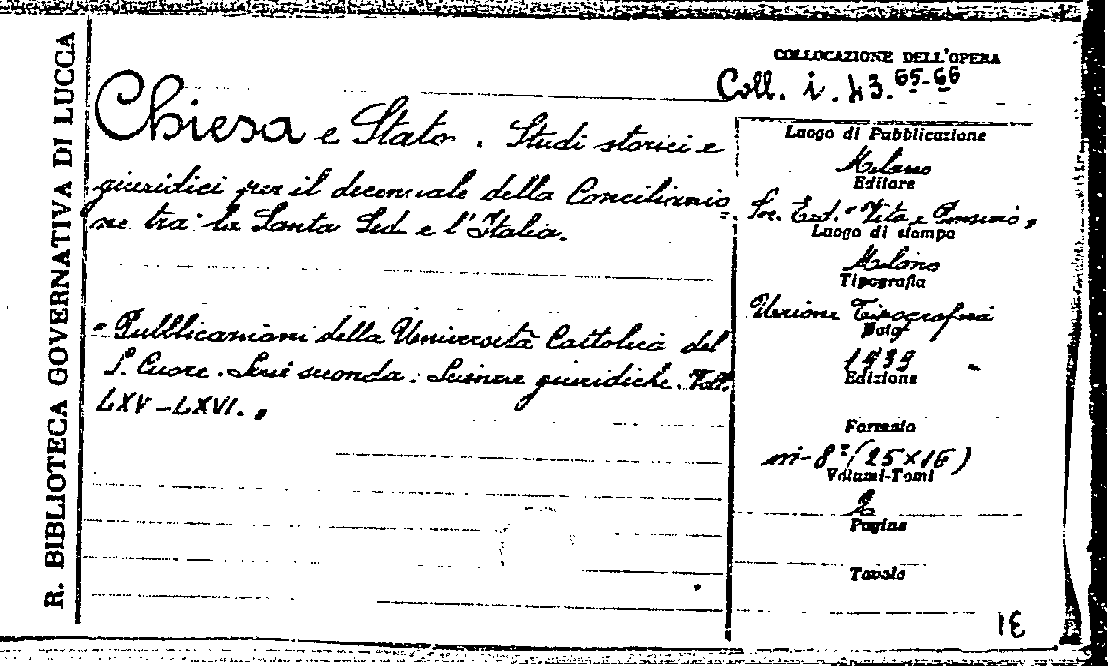 R. BIBLIOTECA GOVERNATIVA DI LUCCA
COLLOCAZIONE DELL'OPERA
Coll. i. 43. 65-66
Chiesa e Stato. Studi storici e
giuridici per il decennale della Conciliazio
ne tra la Santa Sed e l'Italia.
"Pubblicazioni della Università Cattolica del
S. Cuore. Serie seconda: Scienze giuridiche. Voll.
LXV-LXVI."
Luogo di Pubblicazione
Milano
Editore
Soc. Ed. "Vita e Pensiero"
Luogo di stampa
Milano
Tipografia
Unione Tipografica
Data
1939
Edizione
Formato
in-8° (25×16)
Volumi-Tomi
2
Pagine
Tavole